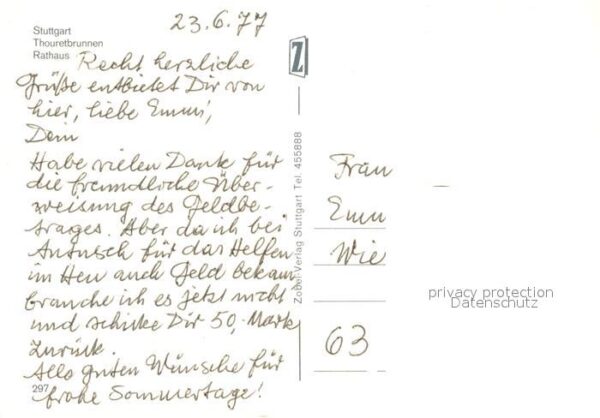 23.6.77
Stuttgart
Thouretbrunnen
Rathaus
Recht herzliche
Grüße entbietet Dir von
hier, liebe Emmi,
Dein
Habe vielen Dank für
die freundliche Über-
weisung des Geldbe-
trages. Aber da ich bei
für das Helfen
im Heu auch Geld bekam
brauche ich es jetzt nicht
und schicke Dir 50,- Mark
zurück.
Alles guten Wünsche für
frohe Sommertage!
297
Z
Zobel-Verlag Stuttgart Tel. 455888
Frau
Emm
Wie
63
privacy protection
Datenschutz